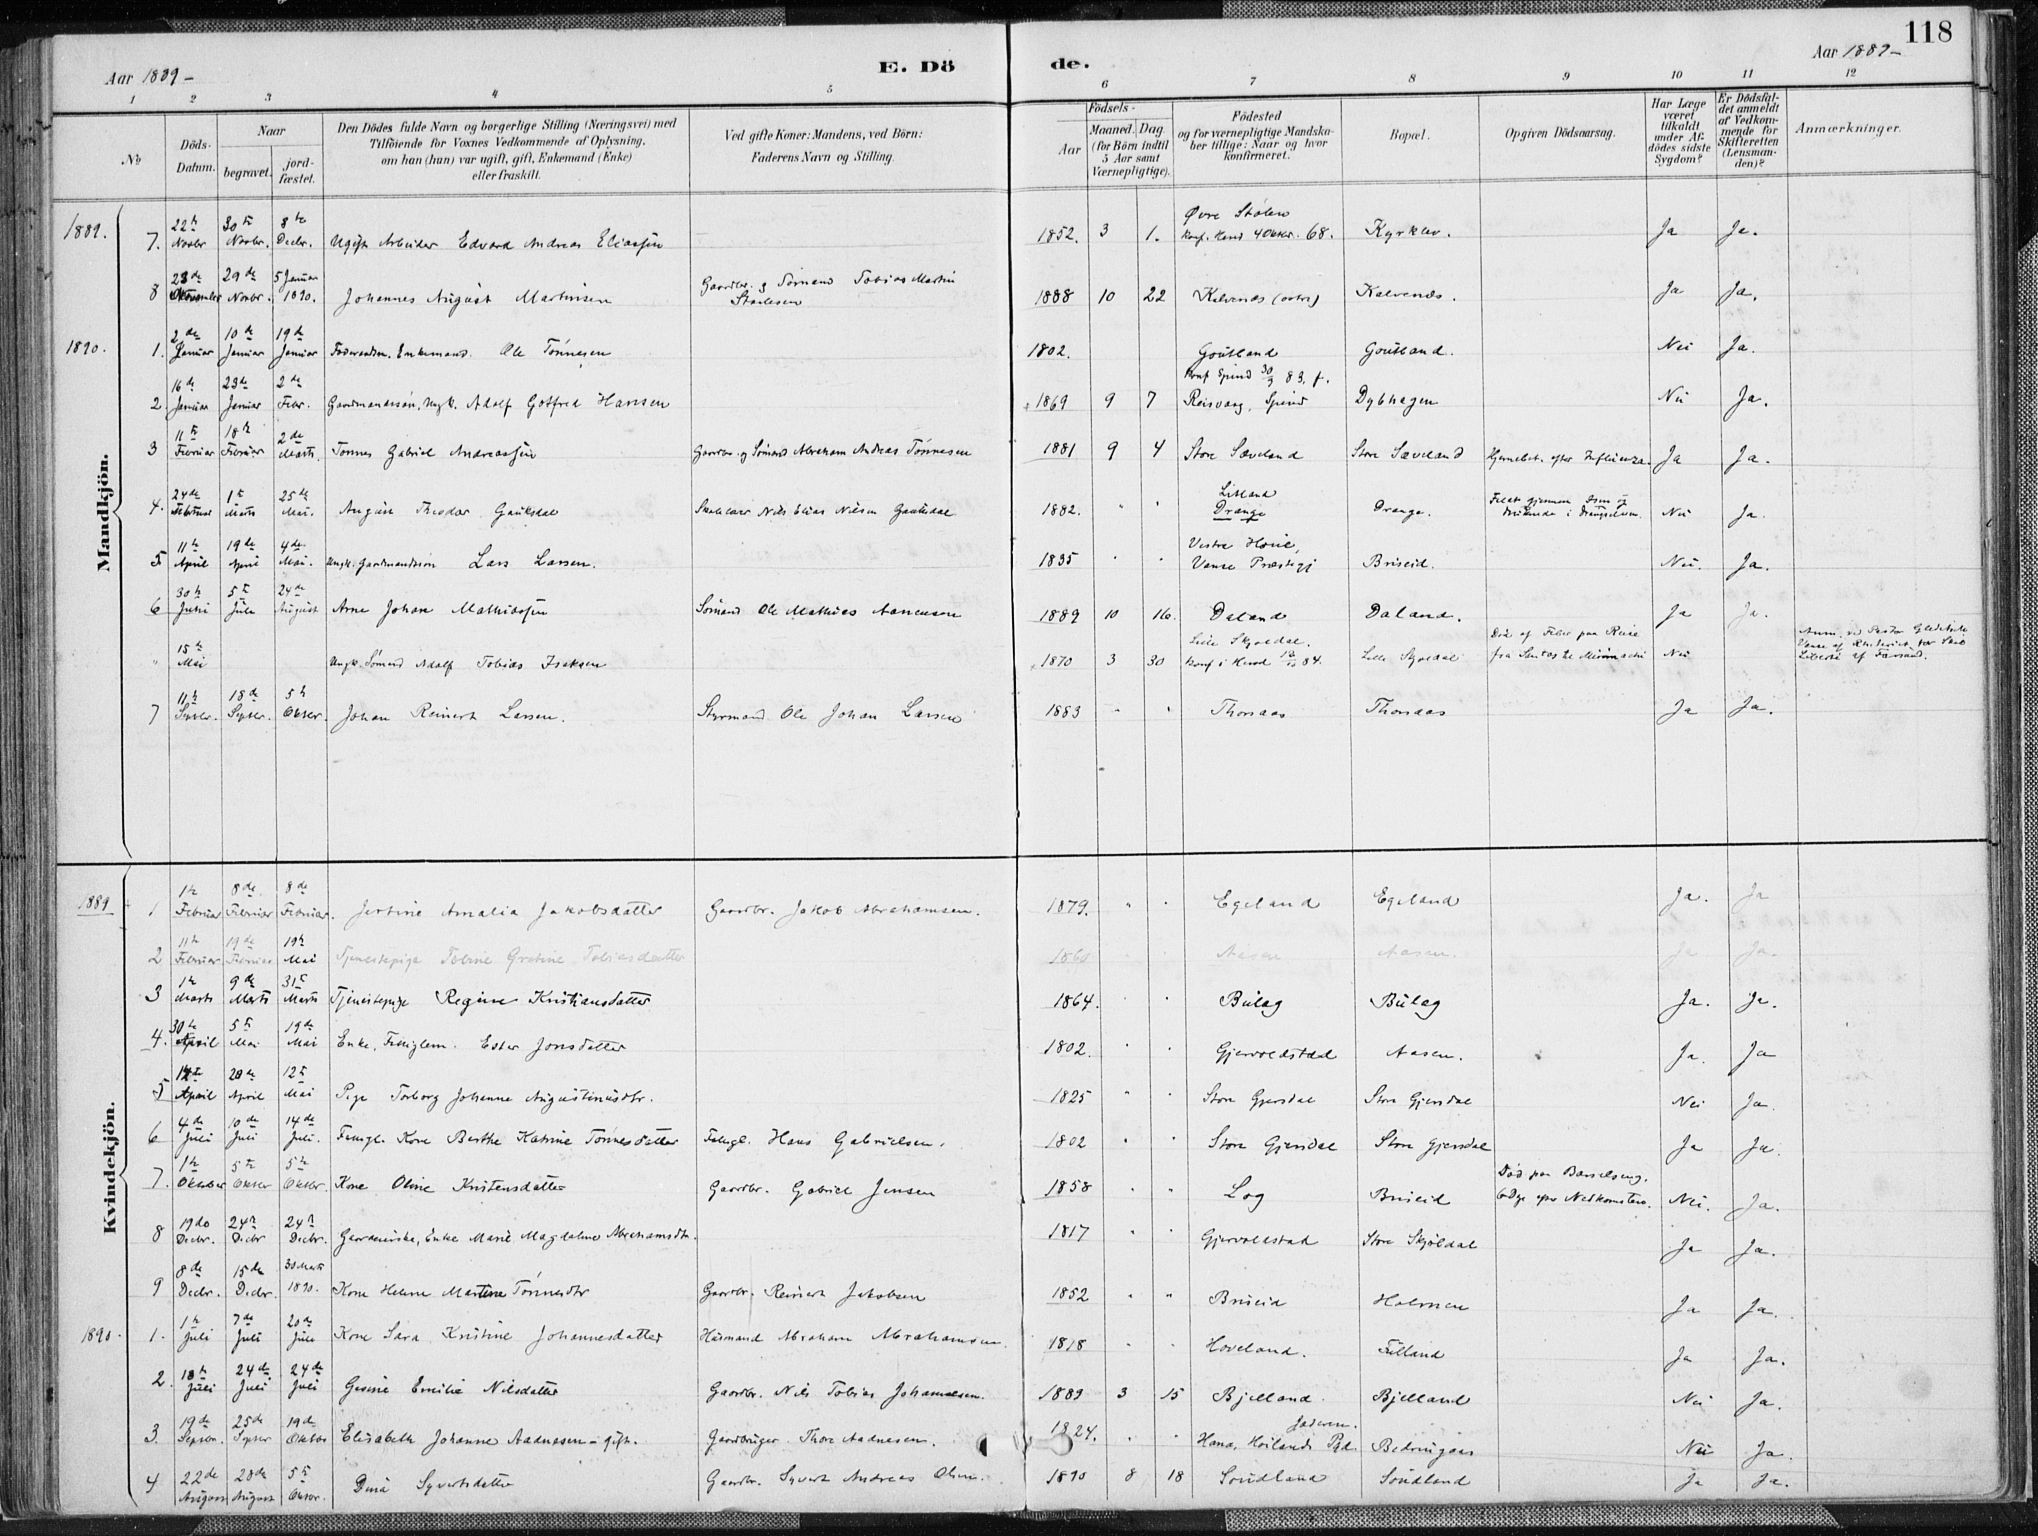 118
Aar 1889 –
E. Dö
de.
Aar 1889 –
1 2 3 4 5 6 7 8 9 10 11 12
No
Döds-Datum.
Naar
begravet.
jord-fæstet.
Den Dödes fulde Navn og borgerlige Stilling (Næringsvei) med
Tilföiende for Voxnes Vedkommende af Oplysning,
om han (hun) var ugift, gift, Enkemand (Enke)
eller fraskilt.
Ved gifte Koner: Mandens, ved Börn:
Faderens Navn og Stilling.
Födsels-
Aar
Maaned. Dag
(for Börn indtil
5 Aar samt
Værnepligtige).
Födested
og for værnepligtige Mandska-
ber tillige: Naar og hvor
konfirmeret.
Bopæl.
Opgiven Dödsaarsag.
Har Læge
været
tilkaldt
under Af-
dödes sidste
Sygdom?
Er Dödsfal-
det anmeldt
af Vedkom-
mende for
Skifteretten
(Lensman-
den)?
Anmærkninger.
Mandkjön.
1889. 7. 22 Novbr 30 Novbr. 8 Decbr. Ugift Arbeider Edvard Andreas Eliassen 1852. 3 1. Øvre Stølen Konf. 4 Oktbr. 68. Ja Ja.
8 29 de Novbr. 5 Januar 1890. Johannes August Martinsen Gaardbr. g Sømand Tobias Martin 1888 10 22 Kalvenæs Kalvenæs. Ja Ja.
1890. 1. 2 de Januar 10 de Januar 19 de Januar Enkemand. Ole Tønnesen 1802. Goutland Goutland. Nei Ja.
2. 16 de Januar 23 de Januar 2 de Febr. Gaardmandssøn, Ungk. Adolf Gotfred Hansen 1869 9 7 Konf Spind 30/9 83. Reisvaag, Spind Dybhagen Nei Ja.
3 11 Februar 18 Februar 2 de Marts. Tønnes Gabriel Andreassen Gaardbr. og Sømand Abraham Andreas Tønnesen 1881 9 4 Store Sæveland Store Sæveland Hjernebet. efter Influenza. Ja Ja.
4. 24 de Februar 1 Marts 25 de Mai. August Theodor Gauksdal Nils Elias Nilsen Gauksdal 1882. " " Litland Drange Drange. Faldt gjennem Isen og druknede i Nei Ja.
5 11 April 19 de April 4 de Mai. Ungk. Gaardmandssøn Lars Larsen. 1835 " " Vestre Vanse Præstegj Briseid. Nei. Ja.
6 30 Juni 5 Juli 24 de August Arne Johan Mathiassen Sømand Ole Mathias Aanensen 1889 10 16. Daland Daland. Ja Ja.
" 15 Mai Ungk. Sømand Adolf Tobias Isaksen 1870 3 30 Lille Skjoldal. Konf i 84. Lille Skjoldal Død af Feber paa Reise fra Santos til Nei Anm. ved Pastor
7 11 Septbr. 18 de Septbr. 5 Oktbr. Johan Reinert Larsen. Styrmand Ole Johan Larsen 1883 " " Thorsaas Thorsaas Ja Ja.
Kvindekjön.
1889 1 1 Februar 8 de Februar 8 de Februar. Jertine Amalia Jakobsdatter Gaardbr. Jakob Abrahamsen. 1879. " " Egeland Egeland Ja. Ja
2 11 Februar 19 de Februar 19 Mai Tjenestepige Toline Gretine Tobiasdatter Aasen Aasen. Ja Ja.
3 1 Marts 9 de Marts 31 Marts Tjenestepige Regine Kristiansdatter 1864. " " Bulag Bulag Ja. Ja.
4. 30 April 5 Mai 19 de Mai Enke, Fattiglem. Ester Jonsdatter 1802. " " Gjervoldstad Aasen. Ja. Ja
5 April 20 de April 12 Mai Pige Torborg Johanne Augustinusdtr. 1825 " " Store Gjersdal Store Gjersdal Nei Ja.
6 4 de Juli 10 de Juli 14 de Juli. Kone Berthe Katrine Tønnesdatter Hans Gabrielsen. 1802 " " Store Gjersdal Store Gjersdal Ja Ja.
7. 1 Oktober 5 Oktbr 5 Oktbr. Kone Oline Kristensdatter Gaardbr. Gabriel Jensen 1858 " " Log Briseid Død paa Barselseng. 6 Dge efter Nedkomsten. Nei. Ja.
8 19 de Decbr. 24 Decbr 24 Decbr. Enke Marie Magdalene Abrahamsdtr. 1817 " " Gjervoldstad Store Skjøldal Ja Ja.
9 8 de Decbr. 15 de Decbr. 30 Marts 1890. Kone Helene Martine Tønnesdtr Gaardbr. Reinert Jakobsen 1852 " " Briseid Holmen Ja Ja.
1890. 1. 1 Juli 7 de Juli 20 de Juli Kone Sara Kristine Johannesdatter Husmand Abraham Abrahamsen. 1818 " " Hoveland. Fulland Ja Ja.
2. 18 Juli 24 de Juli 24 de Juli Gesine Emilie Nilsdatter Gaardbr. Nils Tobias Johannesen. 1889 3 15 Bjelland. Bjelland Nei Ja.
3. 19 de Septbr. 25 de Septbr 19 de Oktbr Elisabeth Johanne Aadnesen – gift. Gaardbruger Thore Aadnesen. 1824. " " Hana, Høilands Pgd Jæderen. Nei Ja.
4 22 de August 28 de August 5 Oktbr. Dina Syvertsdatter Gaardbr. Syvert Andreas Olsen. 1890 8 18 Soudland Soudland Ja Ja.